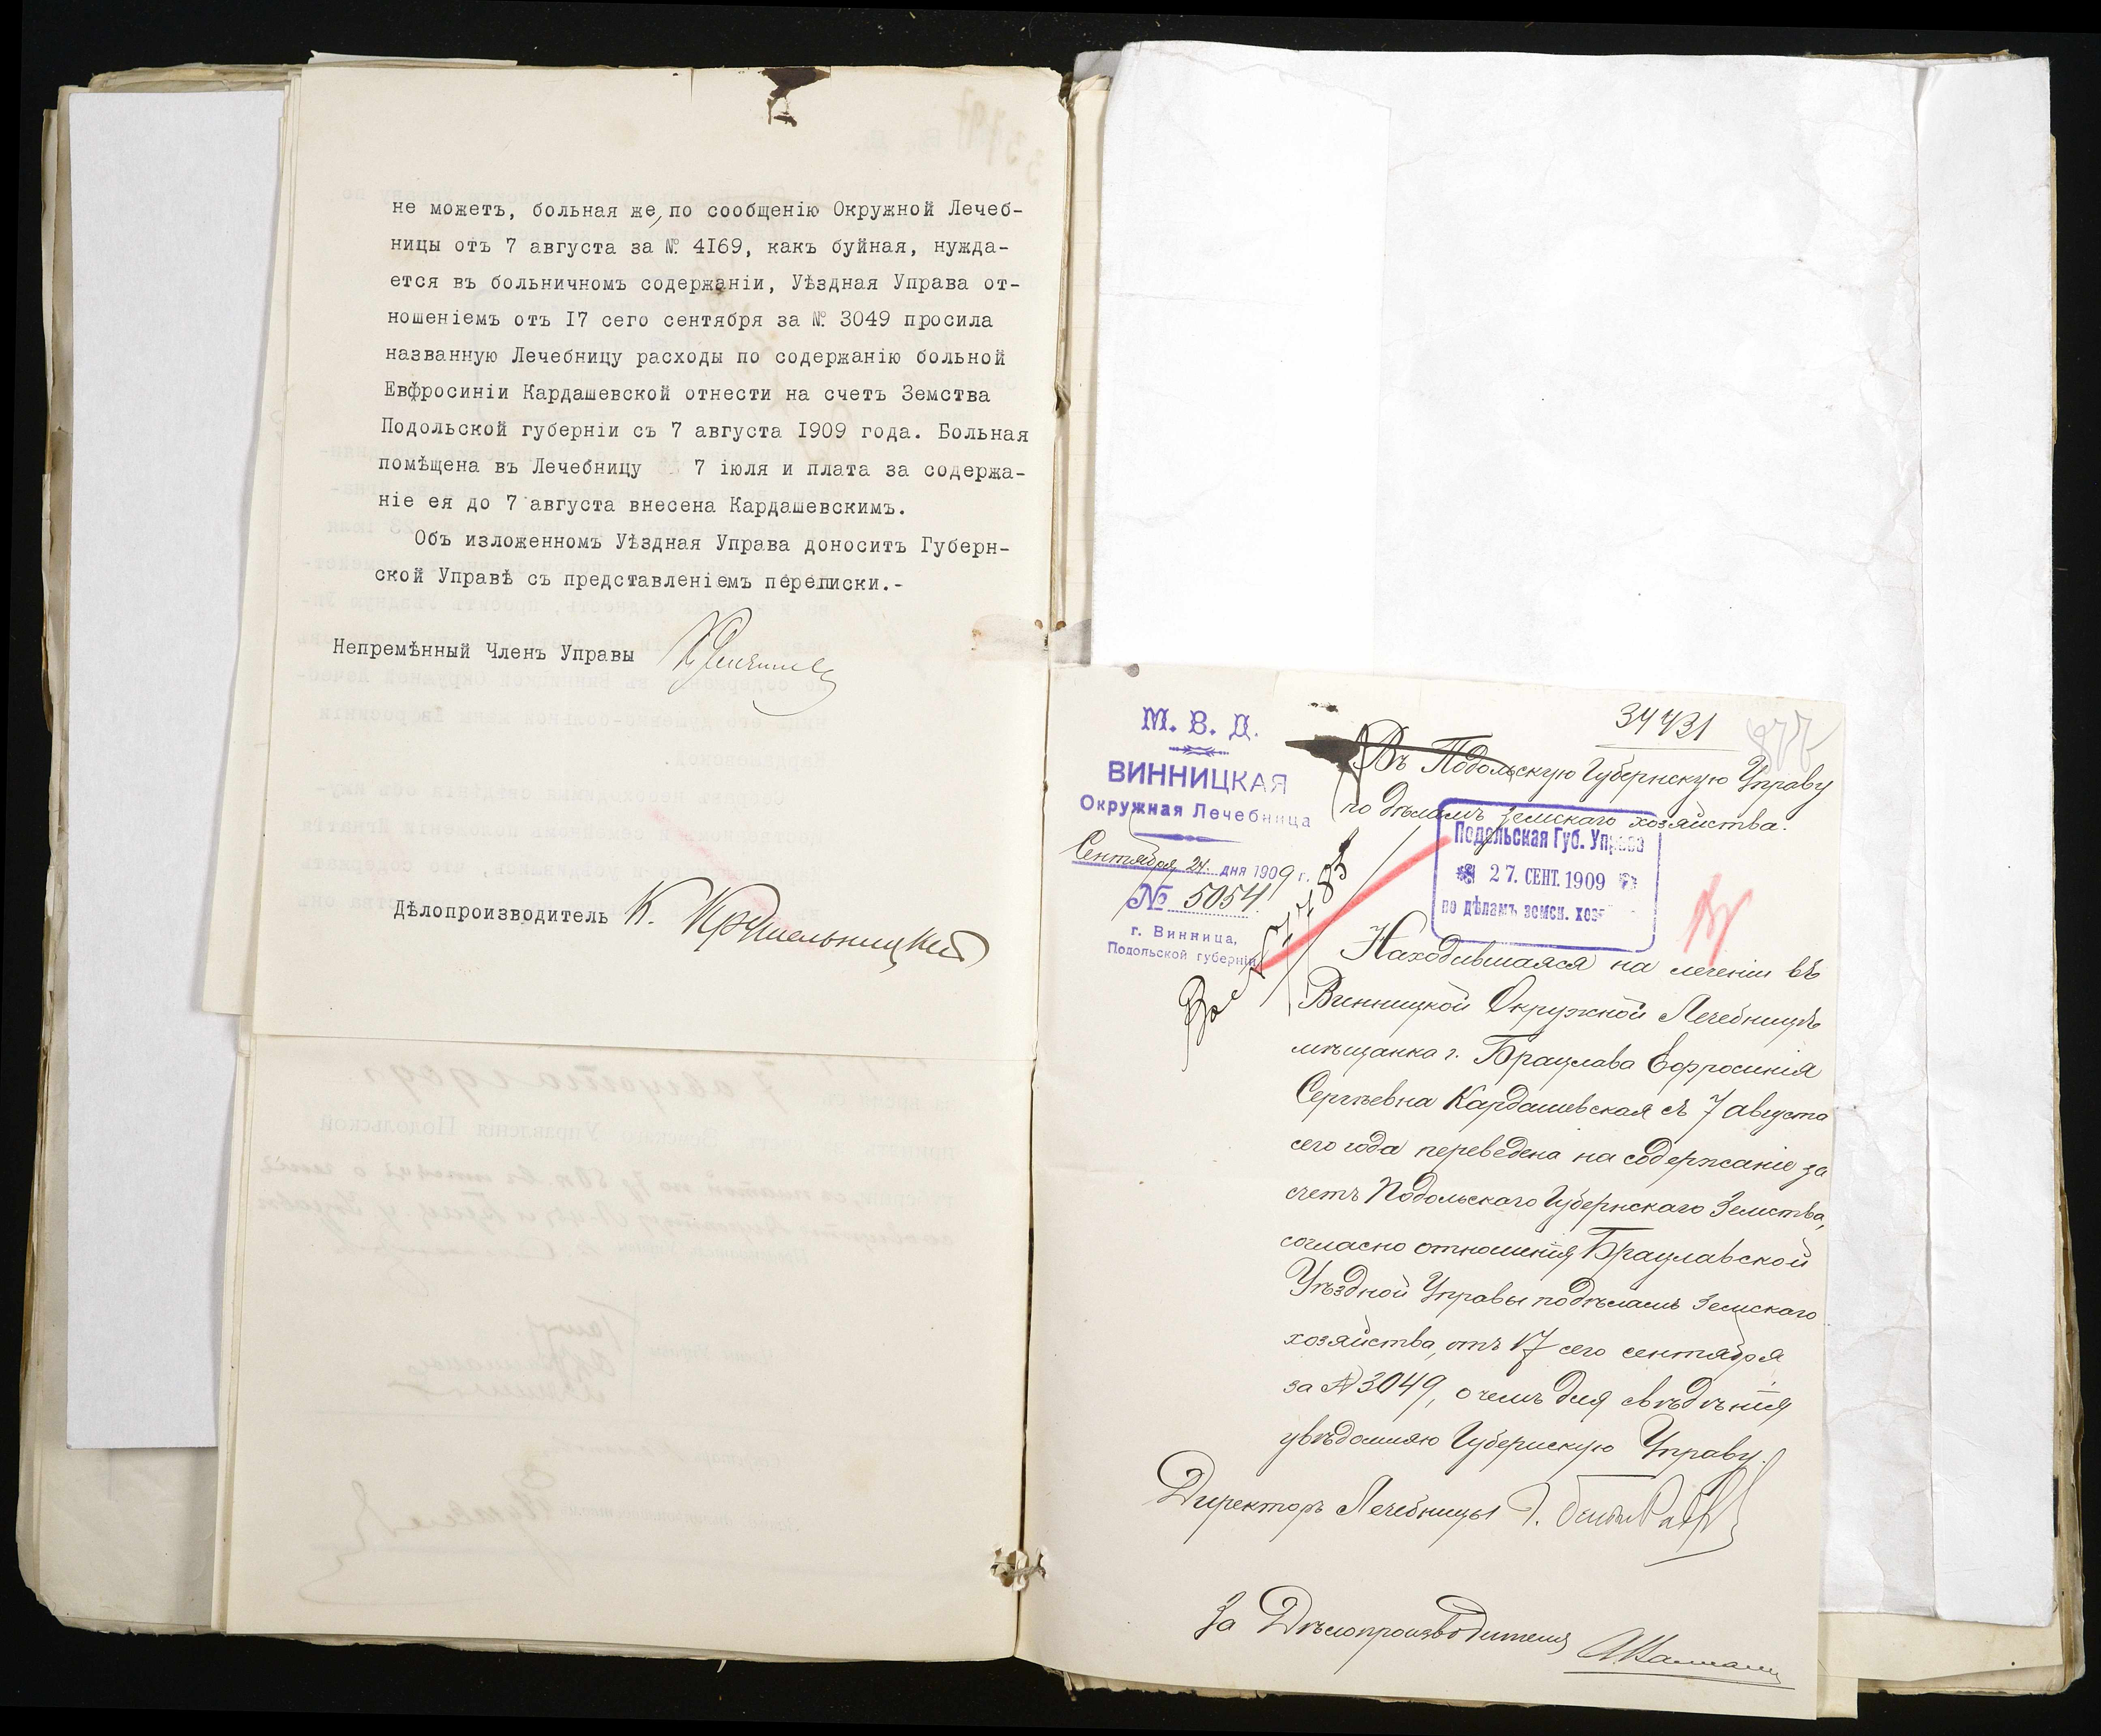 не можетъ, больная же, по сообщенію Окружной Лечеб-
ницы отъ 7 августа за № 4I69, какъ буйная, нужда-
ется въ больничномъ содержаніи, Уѣздная Управа от-
ношеніемъ отъ I7 сего сентября за № 3049 просила
названную Лечебницу расходы по содержанію больной
Евфросиніи Кардашевской отнести на счетъ Земства
Подольской губерніи съ 7 августа I909 года. Больная
помѣщена въ Лечебницу 7 іюля и плата за содержа-
ніе ея до 7 августа внесена Кардашевскимъ.
Объ изложенномъ Уѣздная Управа доноситъ Губерн-
ской Управѣ съ представленіемъ переписки.-
Непремѣнный Членъ Управы
Дѣлопроизводитель К.
34431
877
М. В. Д.
ВИННИЦКАЯ
Окружная Лечебница
Сентября 24 дня 1909 г.
№ 5054
г. Винница,
Подольской губерніи
Въ Подольскую Губернскую Управу
по дѣламъ земскаго хозяйства.
Подольская Губ. Управа
27. СЕНТ. 1909
по дѣламъ земск. хоз
Находившаяся на леченіи въ
Винницкой Окружной Лечебницѣ
мѣщанка г. Брацлава Ефросинія
Сергѣевна Кардашевская съ 7 августа
сего года переведена на содержаніе за
счетъ Подольскаго Губернскаго Земства,
согласно отношенія Брацлавской
Уѣздной Управы по дѣламъ Земскаго
хозяйства, отъ 17 сего сентября
за № 3049, о чемъ для свѣдѣнія
увѣдомляю Губернскую Управу.
Директоръ Лечебницы
За Дѣлопроизводителя